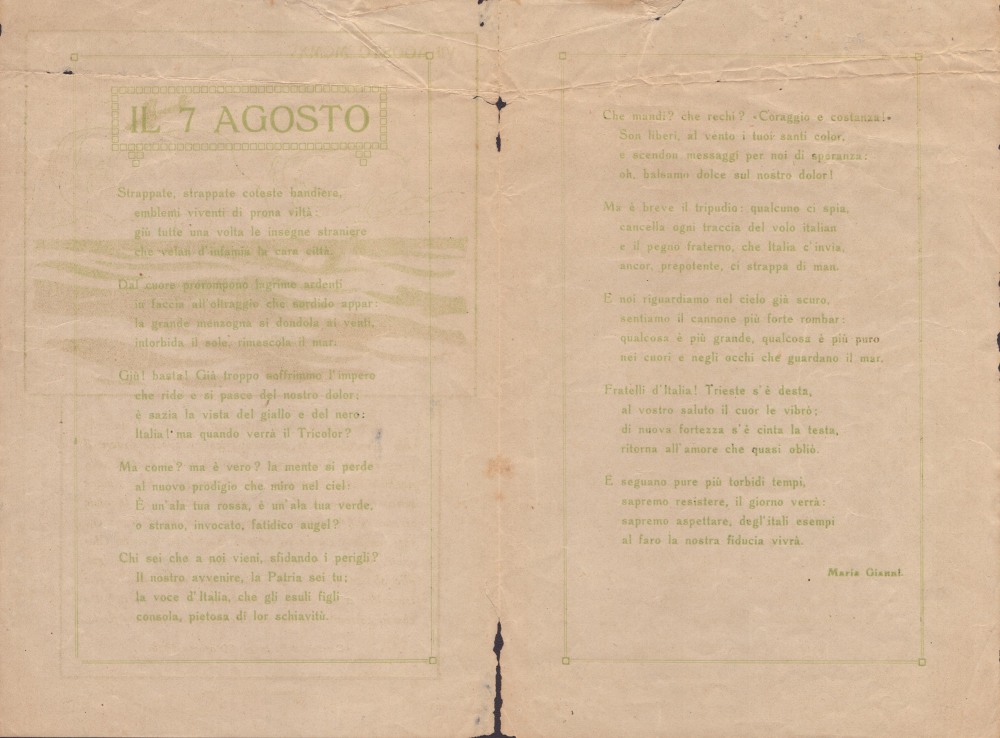 IL 7 AGOSTO
Strappate, strappate coteste bandiere,
emblemi viventi di prona viltà:
giù tutte una volta le insegne straniere
che velan d'infamia la cara città.
Dal cuore prorompono lagrime ardenti
in faccia all'oltraggio che sordido appar:
la grande menzogna si dondola ai venti,
intorbida il sole, rimescola il mar.
Giù! basta! Già troppo soffrimmo l'impero
che ride e si pasce del nostro dolor;
è sazia la vista del giallo e del nero:
Italia! ma quando verrà il Tricolor?
Ma come? ma è vero? la mente si perde
al nuovo prodigio che miro nel ciel:
È un'ala tua rossa, è un'ala tua verde,
o strano, invocato, fatidico augel?
Chi sei che a noi vieni, sfidando i perigli?
Il nostro avvenire, la Patria sei tu;
la voce d'Italia, che gli esuli figli
consola, pietosa di lor schiavitù.
Che mandi? che rechi? «Coraggio e costanza!»
Son liberi, al vento i tuoi santi color,
e scendon messaggi per noi di speranza:
oh, balsamo dolce sul nostro dolor!
Ma è breve il tripudio: qualcuno ci spia,
cancella ogni traccia del volo italian
e il pegno fraterno, che Italia c'invia,
ancor, prepotente, ci strappa di man.
E noi riguardiamo nel cielo già scuro,
sentiamo il cannone più forte rombar:
qualcosa è più grande, qualcosa è più puro
nei cuori e negli occhi che guardano il mar.
Fratelli d'Italia! Trieste s'è desta,
al vostro saluto il cuor le vibrò;
di nuova fortezza s'è cinta la testa,
ritorna all'amore che quasi obliò.
E seguano pure più torbidi tempi,
sapremo resistere, il giorno verrà:
sapremo aspettare, degl'itali esempi
al faro la nostra fiducia vivrà.
Maria Gianni.